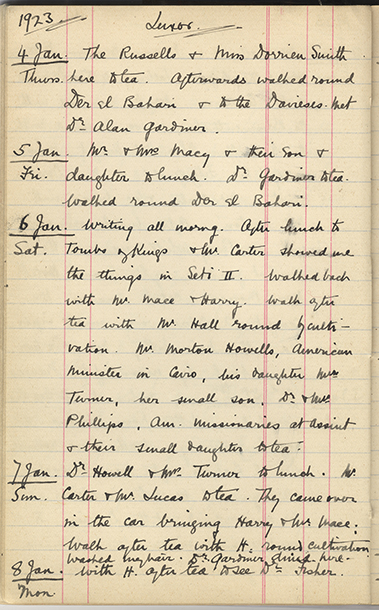 1923 Luxor.
4 Jan. The Russells & Miss Dorrien Smith
Thurs. here to tea. Afterwards walked round
Der el Bahari & to the Davieses. Met
Dr Alan Gardiner.
5 Jan. Mr. & Mrs Macy & their Son &
Fri. daughter to lunch. Dr. Gardiner to tea.
Walked round Der el Bahari.
6 Jan. Writing all morng. After lunch to
Sat. Tombs of Kings & Mr. Carter showed me
the things in Seti II. Walked back
with Mr. Mace & Harry. Walk after
tea with Mr Hall round by culti-
vation. Mr. Morton Howells, American
Minister in Cairo, his daughter Mrs
Turner, her small son, Dr & Mrs
Phillips, Am. missionaries at Assiut
& their small daughter to tea.
7 Jan. Dr Howell & Mrs Turner to lunch. Mr.
Sun. Carter & Mr. Lucas to tea. They came over
in the car bringing Harry & Mr. Mace.
Walk after tea with H. round cultivation
washed my hair. Dr. Gardiner dined here.
8 Jan. with H. after tea to see Dr. Fisher.
Mon.